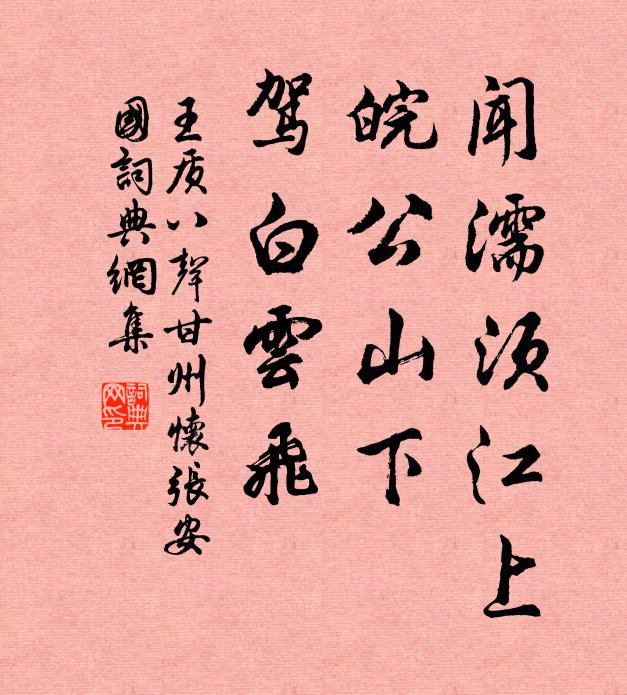 闻濡须江上
皖公山下
驾白雲飛
王质八聲甘州懷張安
國詞典網集
詞典
网印